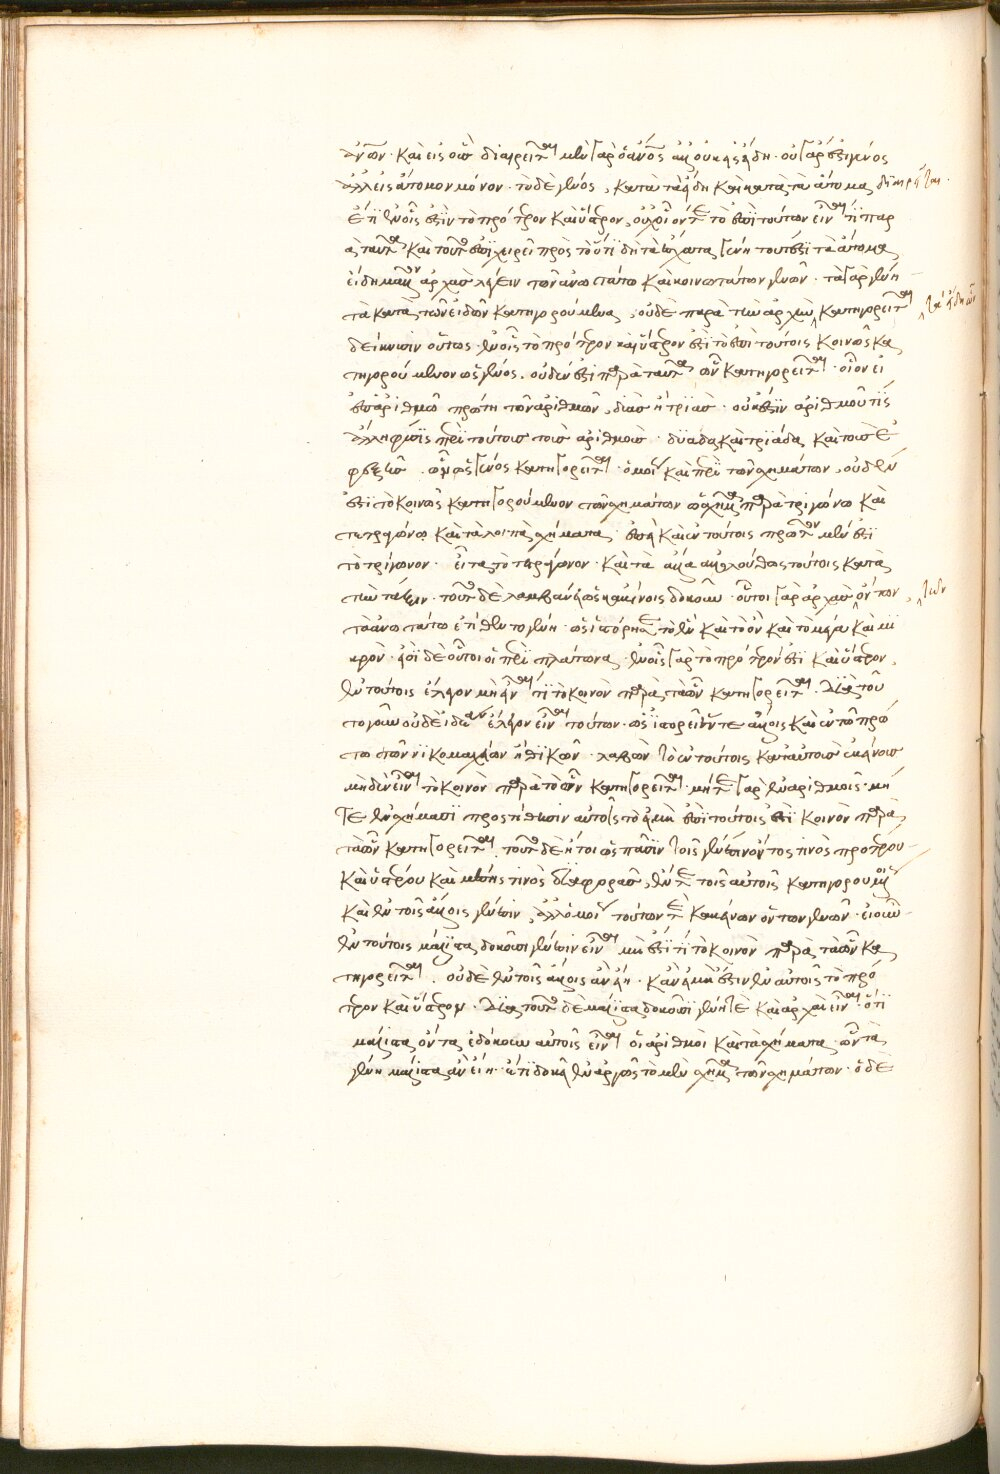 ἀνων· καὶ εἰς διαιρεῖται μὲν γὰρ ὁ ἄνος ἀλλ οὐκ εἰς εἴδη· οὐ γάρ ἐστι γένος
ἀλλ εἰς ἄτομον μόνον· τὸ δὲ γένος, κατὰ τὰ εἴδη καὶ κατὰ τὰ ἄτομα διαιρεῖται.
ἔτι ἐν οἷς ἐστὶν τὸ πρότερον καὶ ὕστερον, οὐχ οἷόν τε τὸ ἐπὶ τούτων εἶναί τι παρ
ὰ ταῦτα καὶ τοῦτο ἐπιχειρεῖ πρὸς τὸ ὅτι δὴ τὰ ἔσχατα γένη τουτέστι τὰ ἄτομα
εἴδη μᾶλλον ἀρχὰς λέγειν τῶν ἀνωτάτω καὶ κοινωτάτων γενῶν· τὰ γὰρ γένη
τὰ κατὰ τῶν εἰδῶν κατηγορούμενα, οὐδὲ παρὰ τὴν ἀρχὴν κατηγορεῖται
δείκνυσιν οὕτως· ἐν οἷς τὸ πρότερον καὶ ὕστερόν ἐστι τὸ ἐπὶ τούτοις κοινῶς κα
τηγορούμενον ὡς γένος. οὐδέν ἐστι παρὰ ταῦτα ὧν κατηγορεῖται· οἷον εἰ
ἐπ ἀριθμῶ πρώτη τῶν ἀριθμῶν, δυὰς ἢ τριὰς· οὐκ ἔστιν ἀριθμοῦ τὶς
ἄλλη φύσις περὶ τούτοις τοῖς ἀριθμοῖς· δυάδα καὶ τριάδα καὶ τοῖς ἐ
φεξῆς. ὧν ὡς γένος κατηγορεῖται· ὁμοίως καὶ περὶ τῶν σχημάτων, οὐδέν
ἐστι τὸ κοινῶς κατηγορούμενον τῶν σχημάτων ὡς σχῆμα παρὰ τριγώνω καὶ
τετραγώνω καὶ τὰ λοιπὰ σχήματα· ἐπεὶ καὶ ἐν τούτοις πρῶτον μέν ἐστι
τὸ τρίγωνον· εἶτα τὸ τετράγωνον· καὶ τὰ ἄλλα ἀκολούθως τούτοις κατὰ
τὴν τάξιν· τοῦτο δὲ λαμβάνει ὡς κἀκείνοις δοκοῦν· οὗτοι γὰρ ἀρχὰς ὄντων
τὰ ἀνωτάτω ἐτίθεντο γένη· ὡς ἱστόρησε τὸ ἓν καὶ τὸ ὂν καὶ τὸ μέγα καὶ μι
κρόν· εἰσὶ δὲ οὗτοι οἱ περὶ πλάτωνα· ἐν οἷς γὰρ τὸ πρότερόν ἐστι καὶ ὕστερον,
ἐν τούτοις ἔλεγον μὴ εἶναί τι τὸ κοινὸν παρὰ τὰ ὧν κατηγορεῖται. διὰ τοῦ
το γοῦν οὐδὲ ἰδέαν ἔλεγον εἶναι τούτων· ὡς ἱστορεῖ ἔν τε ἄλλοις καὶ ἐν τῶ πρώ
τω τῶν νικομαχείων ἠθικῶν· λαβὼν τὸ ἐν τούτοις κατ αὐτοὺς ἐκείνοις
μηδὲν εἶναι τὸ κοινὸν παρὰ τὸ ὧν κατηγορεῖται· μήτε γὰρ ἐν ἀριθμοῖς· μή
τε ἐν σχήμασι προστίθησιν αὐτοῖς τὸ εἰ μὴ ἐπὶ τούτοις ἐστὶ κοινὸν παρὰ
τὰ ὧν κατηγορεῖται. τοῦτο δὲ ἤτοι ὡς πᾶσιν τοῖς γένεσιν ὄντος τινὸς προτέρου
καὶ ὑστέρου καὶ μέσης τινὸς διαφορᾶς, ἔν τε τοῖς αὐτοῖς κατηγορουμένοις
καὶ ἐν τοῖς ἄλλοις γένεσιν, ἀλλ ὁμοίως τούτων τε κἀκείνων ὄντων γενῶν· εἰ οὖν
ἐν τούτοις μάλιστα δοκοῦσι γένεσιν εἶναι μὴ ἔστι τὶ τὸ κοινὸν παρὰ τὰ ὧν κα
τηγορεῖται. οὐδὲ ἐν τοῖς ἄλλοις ἂν εἴη· κἂν εἰ μὴ ἔστιν ἐν αὐτοῖς τὸ πρό
τερον καὶ ὕστερον· διὰ τοῦτο δὲ μάλιστα δοκοῦσι γένη τε καὶ ἀρχαὶ εἶναι· ὅτι
μάλιστα ὄντα ἐδόκουν αὐτοῖς εἶναι οἱ ἀριθμοὶ καὶ τὰ σχήματα· ὧν τὰ
γένη μάλιστα ἂν εἴη· ἔτι δοκεῖ ἐναργῶς τὸ μὲν σχῆμα τῶν σχημάτων· ὁ δὲ